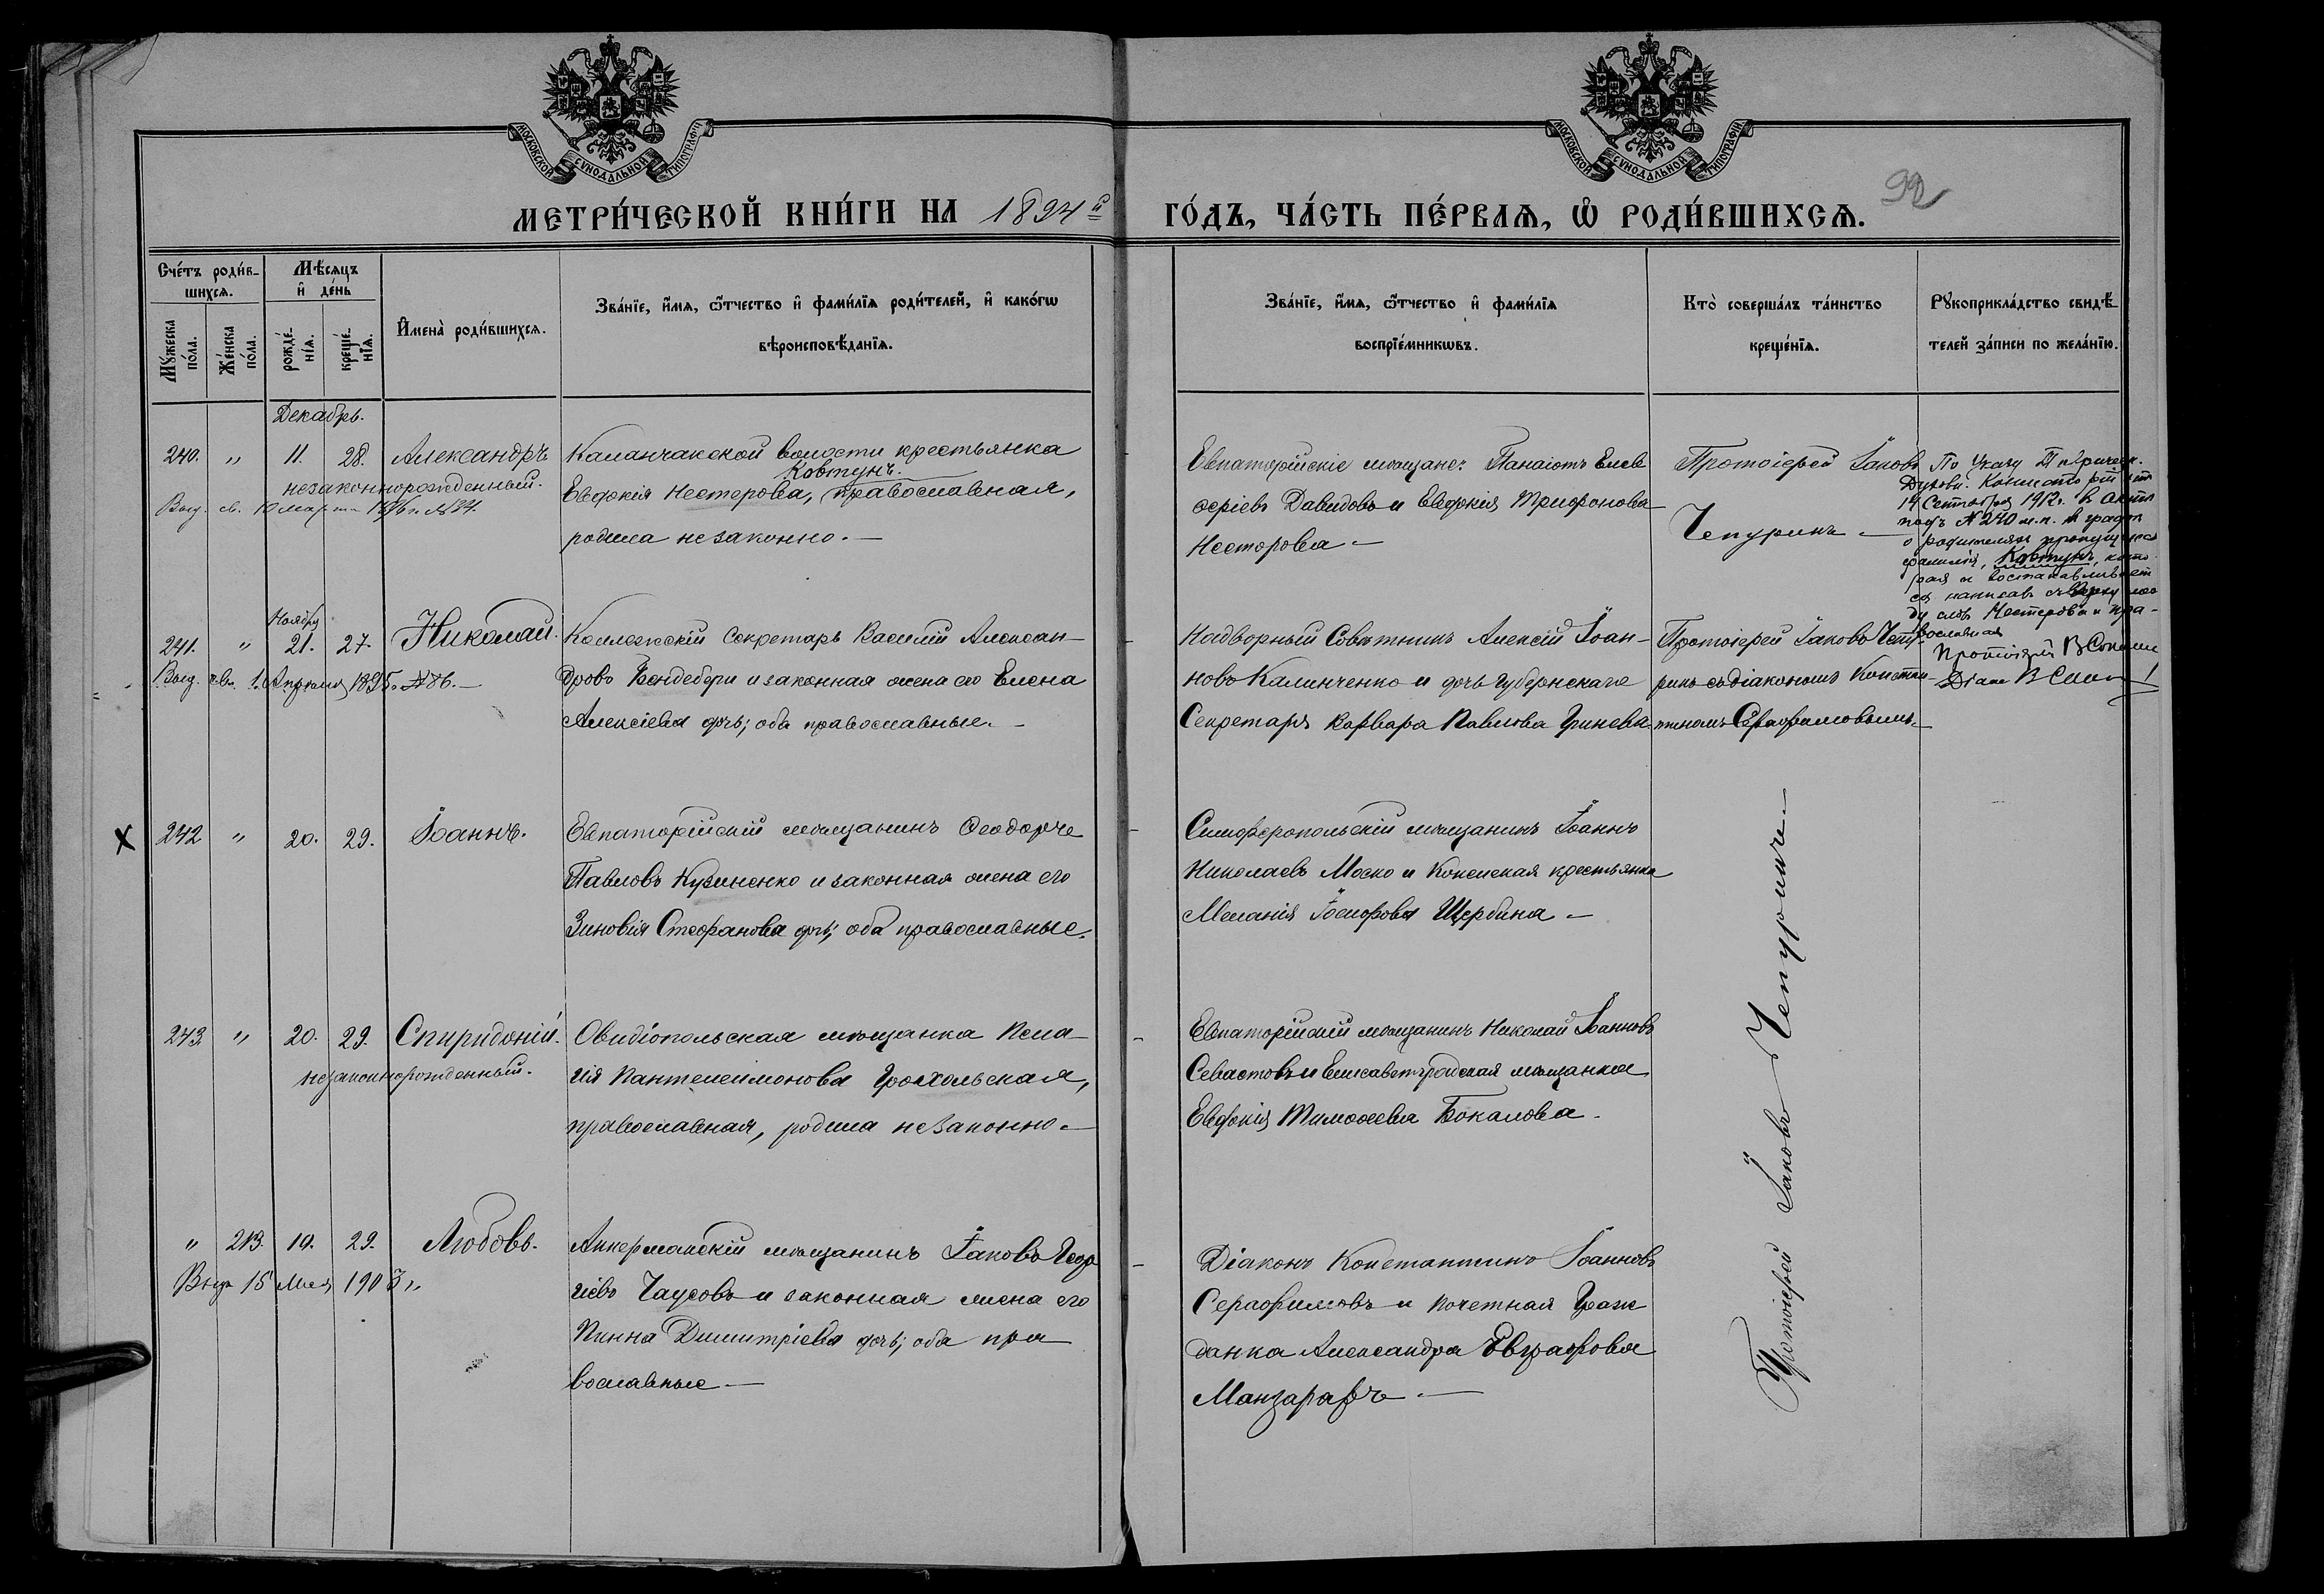 МОСКОВСКОЙ СѴНОДАЛЬНОЙ ТИПОГРАФІИ
МОСКОВСКОЙ СѴНОДАЛЬНОЙ ТИПОГРАФІИ
92
МЕТРИ́ЧЕСКОЙ КНИ́ГИ НА 1894й
ГО́ДЪ, ЧА́СТЬ ПЕ́РВАѦ, Ѡ҆ РОДИ́ВШИХСѦ.
Сче́тъ роди́в-
шихсѧ.
Мꙋ́жеска по́ла.
Же́нска по́ла.
Мѣ́сяцъ
и҆ де́нь
рожде́-нїѧ.
креще́-нїѧ.
И҆мена̀ роди́вшихсѧ.
Зва́нїе, и҆́мѧ, ѻ҆́тчество и҆ фами́лїѧ роди́телей, и҆ како́гѡ
вѣроисповѣ́данїѧ.
Зва́нїе, и҆́мѧ, ѻ҆́тчество и҆ фами́лїѧ
воспрїе́мникѡвъ.
Кто̀ соверша́лъ та́инство
креще́нїѧ.
Рꙋкоприкла́дство свидѣ́-
телей за́писи по жела́нїю.
Декабрь.
240. " 11. 28. Александръ
незаконнорожденный.
Выд. св. 10 Марта
Каланчакской волости крестьянка
Ковтунъ.
Евдокія Нестерова, православная,
родила незаконно.—
Евпаторійскіе мѣщане: Панаіотъ Елев
ѳеріевъ Давидовъ и Евдокія Трифонова
Несторова —
Протоіерей Іаковъ
Чепуринъ —
По Указу Таврическ.
Духовн. Консисторіи отъ
19 Сентября 1912 г. въ актѣ
подъ № 240 м.п. въ графѣ
о родителяхъ пропущена
фамилія, Ковтунъ, кото
рая и востанавливает
ся написавъ сверху меж
ду словъ Нестерова и пра-
вославная
Протоіерей В
Діак. В
Ноября
241. " 21. 27. Николай.
Выд. св. 1 Апреля 1895 г. № 86.—
Коллежскій Секретарь Василій Алексан-
дровъ Бендебери и законная жена его Елена
Алексіева дочь; оба православные.—
Надворный Совѣтникъ Алексій Іоан-
новъ Калинченко и дочь Губернскаго
Секретаря Варвара Павлова Гринева.
Протоіерей Іаковъ Чепу-
ринъ съ діакономъ Констан-
тиномъ Серафимовымъ.—
х 242 " 20. 29. Іоаннъ.
Евпаторійскій мѣщанинъ Ѳеодоръ
Павловъ Кузиненко и законная жена его
Зиновія Стефанова дочь; оба православные.
Симферопольскій мѣщанинъ Іоаннъ
Николаевъ Моско и крестьянка
Меланія Іосифова Щербина —
243. " 20. 29. Спиридоній.
незаконнорожденный.
Овидіопольская мѣщанка Пела-
гія Пантелеимонова Грохольская,
православная, родила незаконно.—
Евпаторійскій мѣщанинъ Николай Іоанновъ
Севастовъ и Елисаветградская мѣщанка
Евдокія Тимоѳеева Бокалова.
" 213. 19. 29. Любовь.
Выд. 15 Мая 1903 г.
Аккерманскій мѣщанинъ Іаковъ Геор
гіевъ Чаусовъ и законная жена его
Пинна Димитріева дочь; оба пра
вославные —
Діаконъ Константинъ Іоанновъ
Серафимовъ и почетная Граж
данка Александра Евграфова
Манзарафъ.—
Протоіерей Іаковъ Чепуринъ.—